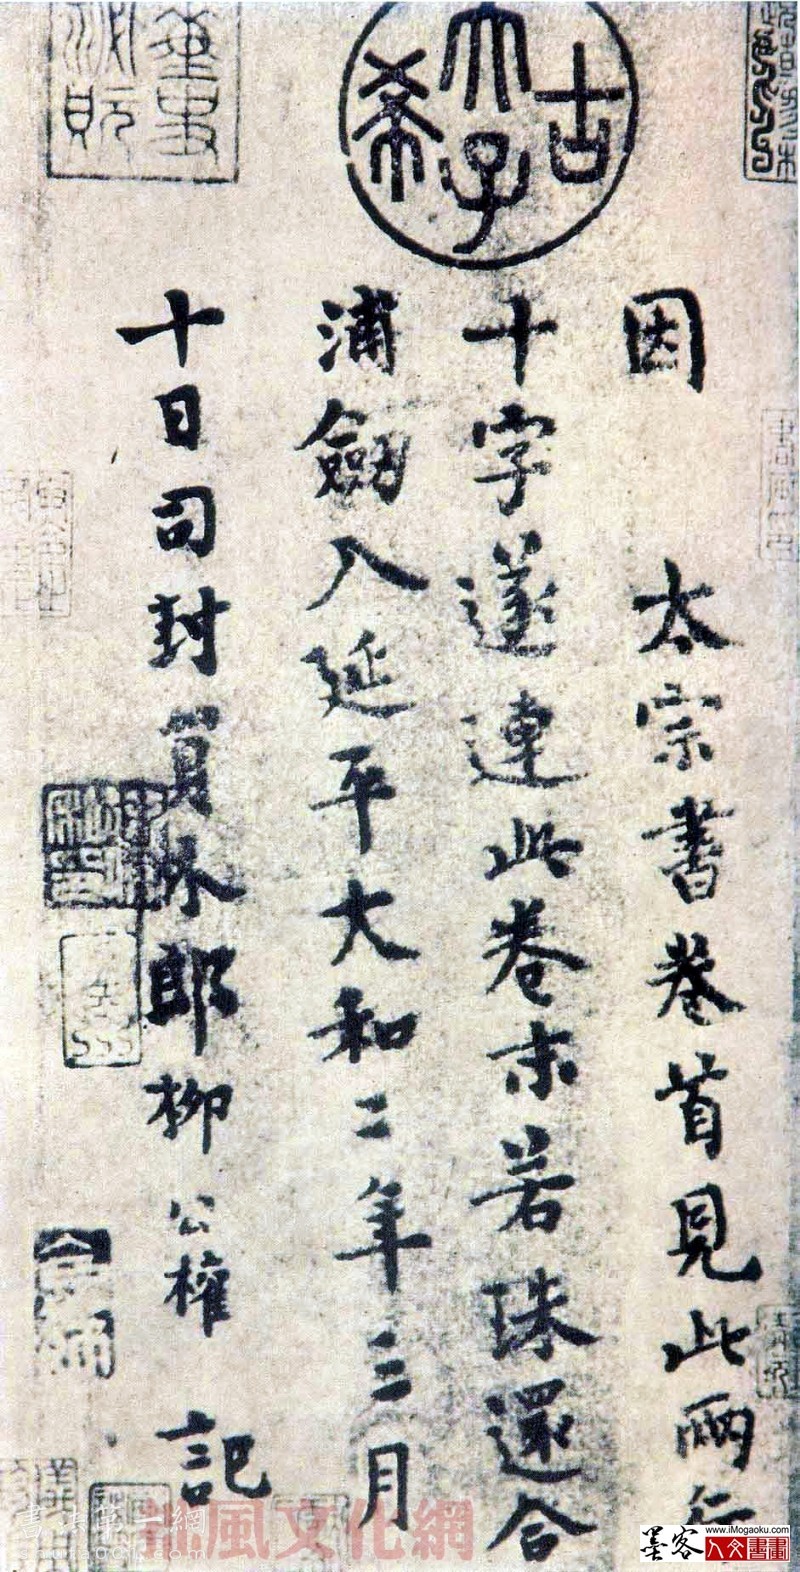 古希天子
因 太宗書卷首見此兩
十字遂連此卷末若珠還合
浦劍入延平大和二年三月
十日司封員外郎柳公權 記
書法第一網
風文化網
墨客
www.iMogaoku.com
人文書畫